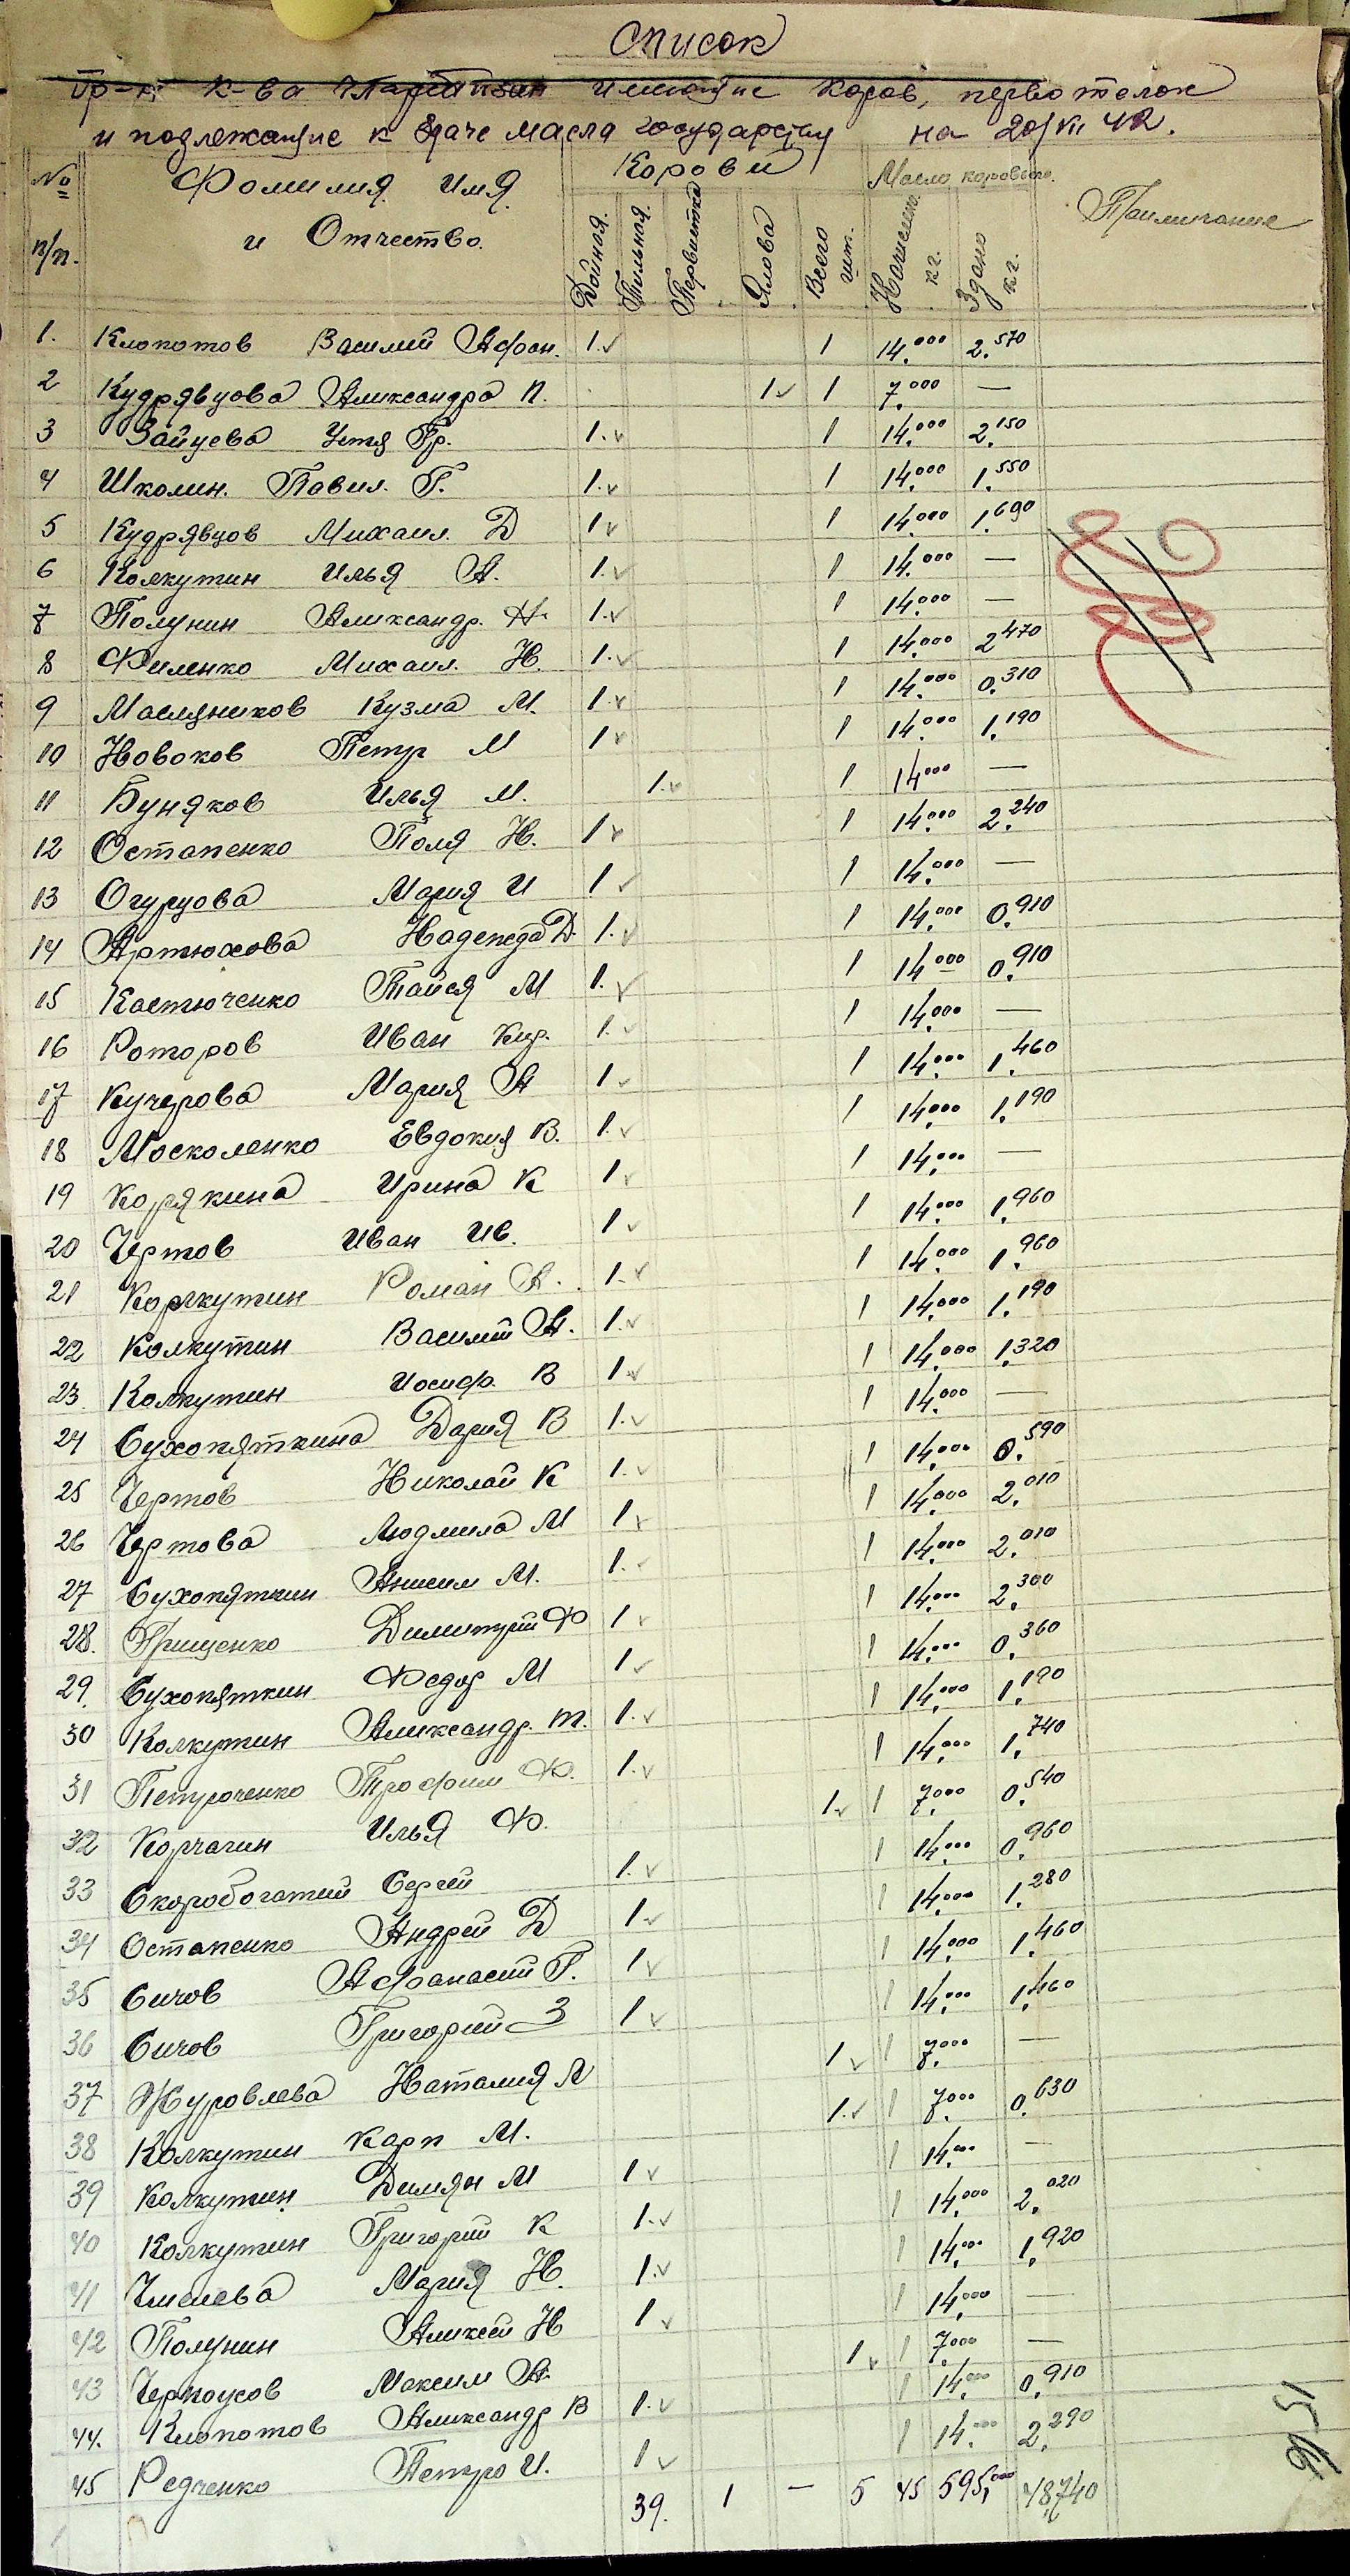 Список
гр-н к-ва Партизан имеющие коров, первотелок
и подлежащие к здаче масла государству на 20/VII 42.
№ п/п. Фамилия Имя и Отчество. Коровы Дойная. Тильная. Первистка Ялова Всего шт. Масло коровьего. Начислено кг. Здано кг. Примичание
1. Клопотов Василий Афан. 1. 1 14.000 2.570
2 Кудрявцова Александра П. 1 1 7.000 —
3 Зайцева Устя Гр. 1. 1 14.000 2.150
4 Школин. Павил. Г. 1. 1 14.000 1.550
5 Кудрявцов Михаил. Д 1 1 14.000 1.690
6 Колкутин Илья А. 1. 1 14.000 —
7 Полунин Александр. Н. 1. 1 14.000 —
8 Филенко Михаил. Н. 1. 1 14.000 2.470
9 Масляников Кузма М. 1. 1 14.000 0.310
10 Новоков Петр М 1 1 14.000 1.190
11 Буняков Илья М. 1. 1 14000 —
12 Остапенко Поля Н. 1 1 14.000 2.240
13 Огурцова Мария И 1 1 14.000 —
14 Артюхова Надежда Д. 1. 1 14.000 0.910
15 Кастюченко Тайся М 1. 1 14000 0.910
16 Роторов Иван Кир. 1. 1 14.000 —
17 Кучерова Мария А 1. 1 14.000 1.460
18 Москоленко Евдокия В. 1. 1 14.000 1.190
19 Корякина Ирина К 1 1 14.000 —
20 Чертов Иван Ив. 1 1 14.000 1.960
21 Колкутин Роман А. 1. 1 14.000 1.960
22 Колкутин Василий А. 1. 1 14.000 1.190
23. Колкутин Иосиф. В 1. 1 14.000 1.320
24 Сухопяткина Дария В 1. 1 14.000 —
25 Чертов Николай К 1. 1 14.000 0.590
26 Чертова Людмила М 1 1 14.000 2.010
27 Сухопяткин Анисим М. 1. 1 14.000 2.010
28. Грищенко Димитрий Ф 1 1 14.000 2.300
29. Сухопяткин Федор М 1 1 14.000 0.360
30 Колкутин Александр. Т. 1. 1 14.000 1.190
31 Петроченко Трофим Ф. 1. 1 14.000 1.740
32 Корчагин Илья Ф. 1. 1 7.000 0.540
33 Скоробогатий Сергей 1. 1 14.000 0.960
34 Остапенко Андрей Д 1. 1 14.000 1.280
35 Сичов Афанасий Г. 1 1 14.000 1.460
36 Сичов Григорий З 1 1 14.000 1.460
37 Журовлева Наталия Л 1. 1 7.000 —
38 Колкутин Карп М. 1. 1 7.000 0.630
39 Колкутин Димян М 1 1 14.000 —
40 Колкутин Григорий К 1. 1 14.000 2.020
41 Мария Н. 1. 1 14.000 1.920
42 Полунин Алексей Н 1 1 14.000 —
43 Черноусов Максим А. 1 1 7.000 —
44. Клопотов Александр В 1. 1 14.000 0.910
45 Редченко Петро И. 1 1 14.000 2.290
39. 1 — 5 45 595,000 48,740